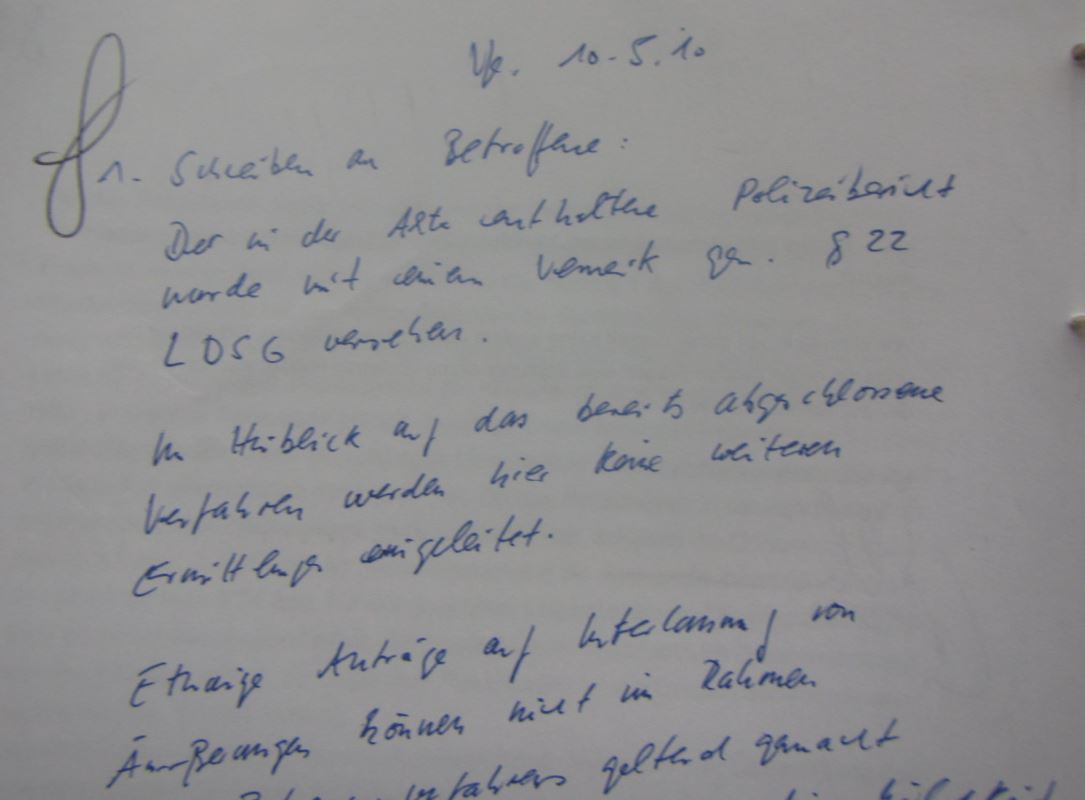 Vfg. 10.5.10
1. Schreiben an Betroffene:
Der in der Akte enthaltene Polizeibericht
wurde mit einem Vermerk gem. § 22
LDSG versehen.
Im Hinblick auf das bereits abgeschlossene
Verfahren werden hier keine weiteren
Ermittlungen eingeleitet.
Etwaige Anträge auf Unterlassung von
Äußerungen können nicht im Rahmen
geltend gemacht